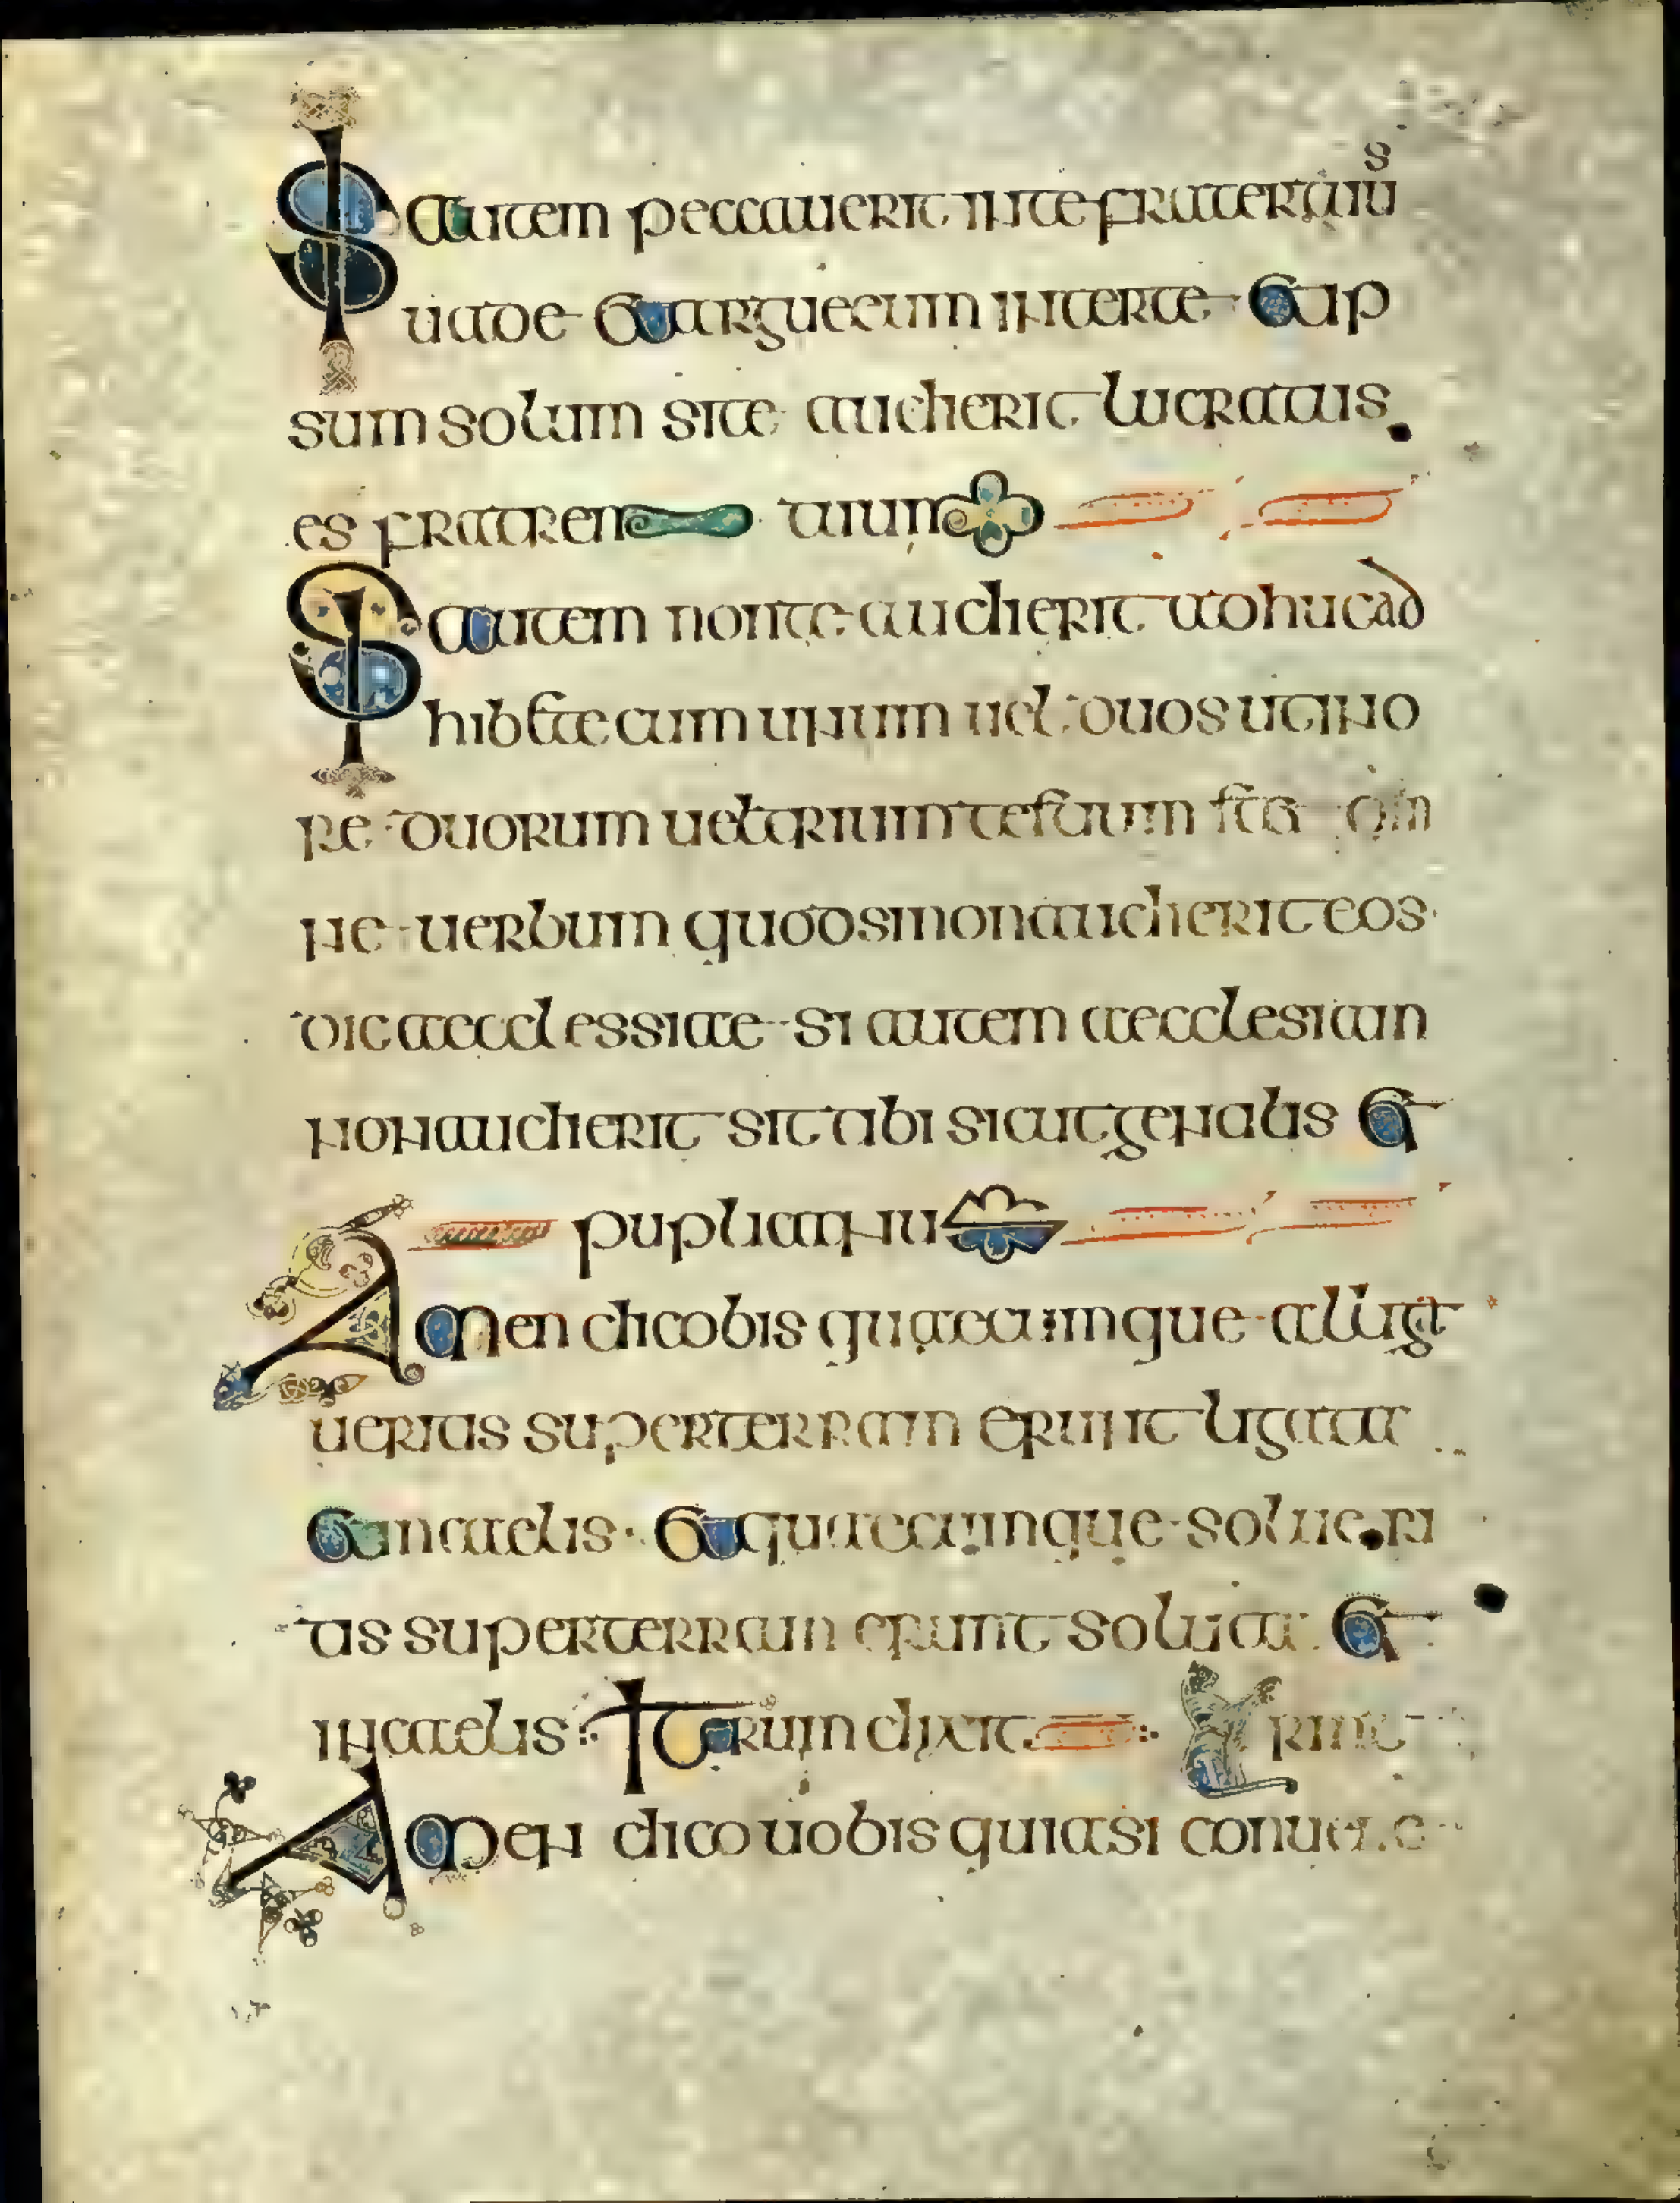 Si autem peccauerit in te frater tuus
uade et argue eum inter te et ip
sum solum si te audierit lucratus
es fratrem tuum
Si autem non te audierit adhuc ad
hibete cum unum uel duos ut in o
re duorum uel trium testium stet om
ne uerbum quod si non audierit eos
dic aecclessiae si autem aecclesiam
non audierit sit tibi sicut gentilis et
puplicanus
Amen dico bis quaecumque allig
ueritis super terram erunt ligata
et in caelis et quaecumque solueri
tis super terram erunt soluta et
in caelis Iterum dixit
Amen dico uobis quia si conue